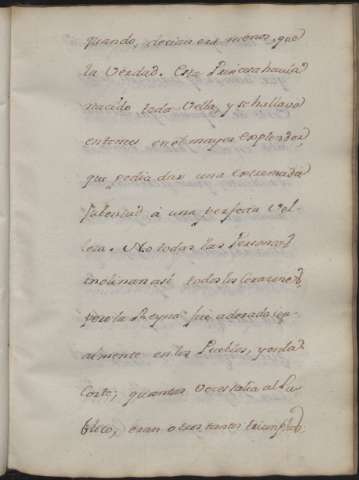 quando, decian era menor, que
la Verdad. Esta Princesa havia
nacido toda Vella, y se hallava
entonces en el mayor esplendor,
que podia dar una estremada
Jubentud á una perfecta Vel-
leza. No todas las Personas
inclinan asi todos los Corazones,
pero la Reyna fue adorada igu-
almente en los Pueblos, y en la
Corte; quantas veces salia al Pu-
blico, eran otros tantos triumphos,